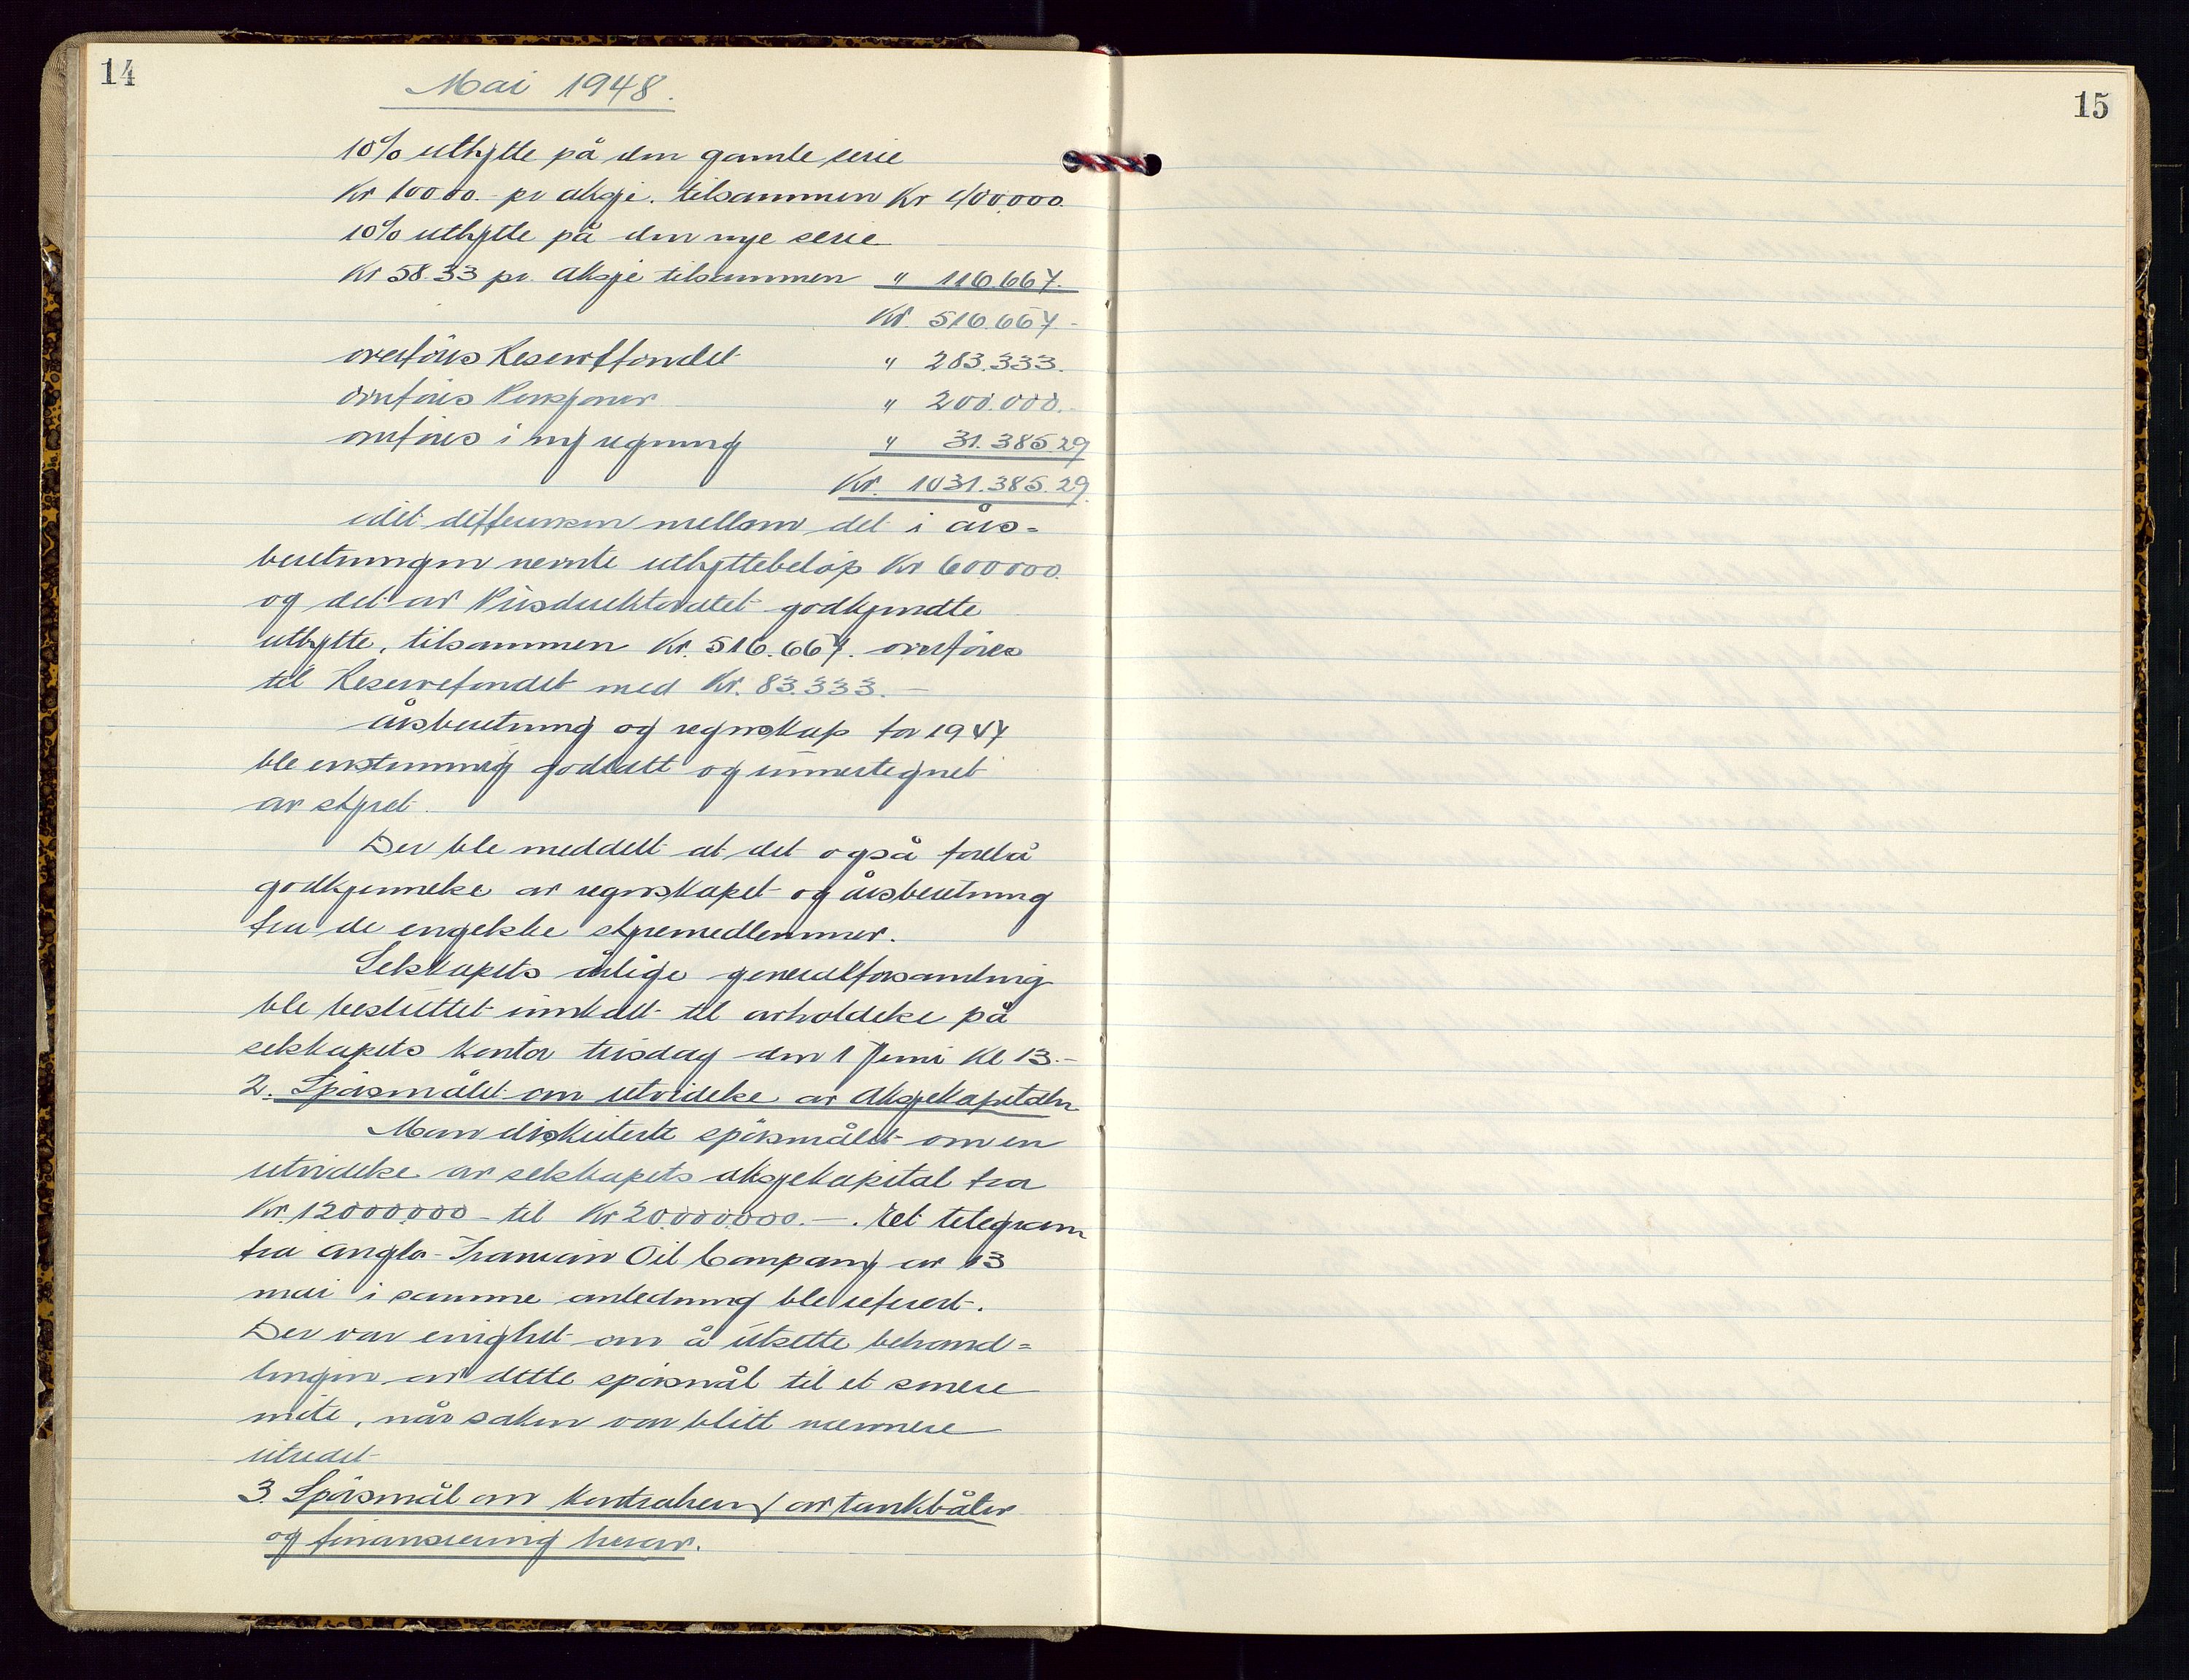 14
Mai 1948.
10% utbytte på den gamle serie
Kr 100.00.- pr aksje. tilsammen Kr 400.000.
10% utbytte på den nye serie
Kr 58.33 pr. aksje tilsammen " 116.667.
Kr. 516.667.-
overföres Reservefondet " 283.333.
overföres Pensjoner " 200.000.-
overföres i ny regning " 31.385.29
Kr. 1031.385.29.
idet differensen mellom det i års=
beretningen nevnte utbyttebelöp Kr 600000.
og det av Prisdirektoratet godkjendte
utbytte, tilsammen Kr. 516.667. overföres
til Reservefondet med Kr. 83.333.-
Årsberetning og regnskap for 1947
ble enstemmig godtatt og undertegnet
av styret.
Der ble meddelt at det også forelå
godkjennelse av regnskapet og årsberetning
fra de engelske styremedlemmer.
Selskapets årlige generalforsamling
ble besluttet innkalt til avholdelse på
selskapets kontor tirsdag den 1 Juni Kl 13.-
2. Spörsmålet om utvidelse av Aksjekapitalen
Man diskuterte spörsmålet om en
utvidelse av selskapets aksjekapital fra
Kr. 12000000- til Kr 20.000.000.-. Et telegram
fra Anglo-Iranian Oil Company av 13
mai i samme anledning ble referert.
Der var enighet om å utsette behand=
lingen av dette spörsmål til et senere
möte, når saken var blitt nærmere
utredet
3. Spörsmål om kontrahering av tankbåter
og finansiering herav.
15